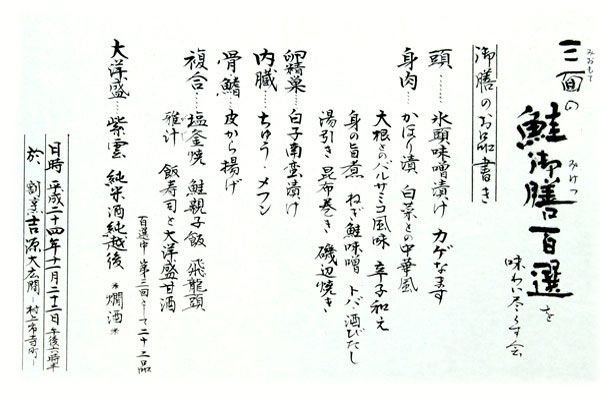 三面の
みおもて
鮭御膳百選を
みけつ
味わい尽くす会
御膳のお品書き
頭……氷頭味噌漬け カゲなます
身肉……かほり漬 白菜との中華風
大根とのバルサミコ風味 辛子和え
身の旨煮 ねぎ鮭味噌 トバ酒びたし
湯引き 昆布巻き 磯辺焼き
卵精巣…白子南蛮漬け
内臓…ちゅう・メフン
骨鰭…皮から揚げ
複合…塩釜焼 鮭親子飯 飛龍頭
雅汁 飯寿司と大洋盛甘酒
百選中 第三回として二十二品
大洋盛…紫雲 純米酒純越後 *燗酒*
日時 平成二十四年十一月二十二日 午後六時半
於 割烹吉源大広間 ー村上市寺町ー